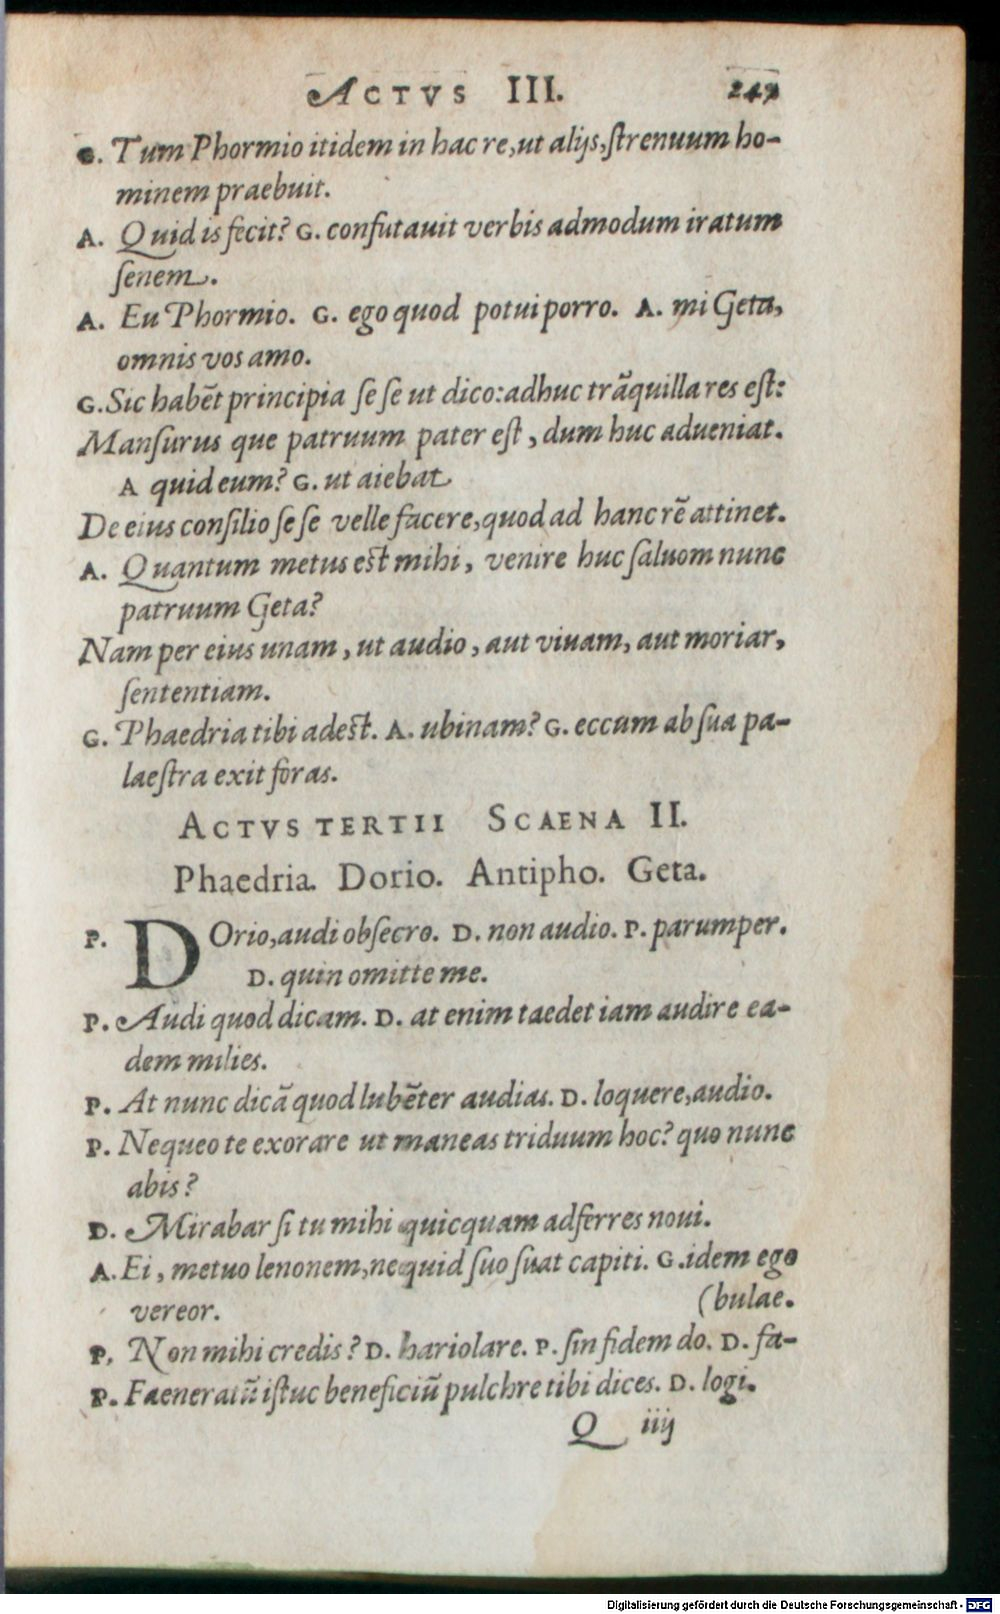 ACTVS III. 247
G. Tum Phormio itidem in hac re, ut alijs, strenuum ho-
minem praebuit.
A. Quid is fecit? G. confutauit verbis admodum iratum
senem.
A. Eu Phormio. G. ego quod potui porro. A. mi Geta,
omnis vos amo.
G. Sic habēt principia se se ut dico: adhuc trāquilla res est:
Mansurus que patruum pater est, dum huc adueniat.
A quid eum? G. ut aiebat
De eius consilio se se velle facere, quod ad hanc rē attinet.
A. Quantum metus est mihi, venire huc saluom nunc
patruum Geta?
Nam per eius unam, ut audio, aut viuam, aut moriar,
sententiam.
G. Phaedria tibi adest. A. ubinam? G. eccum ab sua pa-
laestra exit foras.
ACTVS TERTII SCAENA II.
Phaedria. Dorio. Antipho. Geta.
P. DOrio, audi obsecro. D. non audio. P. parumper.
D. quin omitte me.
P. Audi quod dicam. D. at enim taedet iam audire ea-
dem milies.
P. At nunc dicā quod lubēter audias. D. loquere, audio.
P. Nequeo te exorare ut maneas triduum hoc? quo nunc
abis?
D. Mirabar si tu mihi quicquam adferres noui.
A. Ei, metuo lenonem, ne quid suo suat capiti. G. idem ego
vereor. (bulae.
P. Non mihi credis? D. hariolare. P. sin fidem do. D. fa-
P. Faeneratū istuc beneficiū pulchre tibi dices. D. logi.
Q iiij
Digitalisierung gefördert durch die Deutsche Forschungsgemeinschaft - DFG